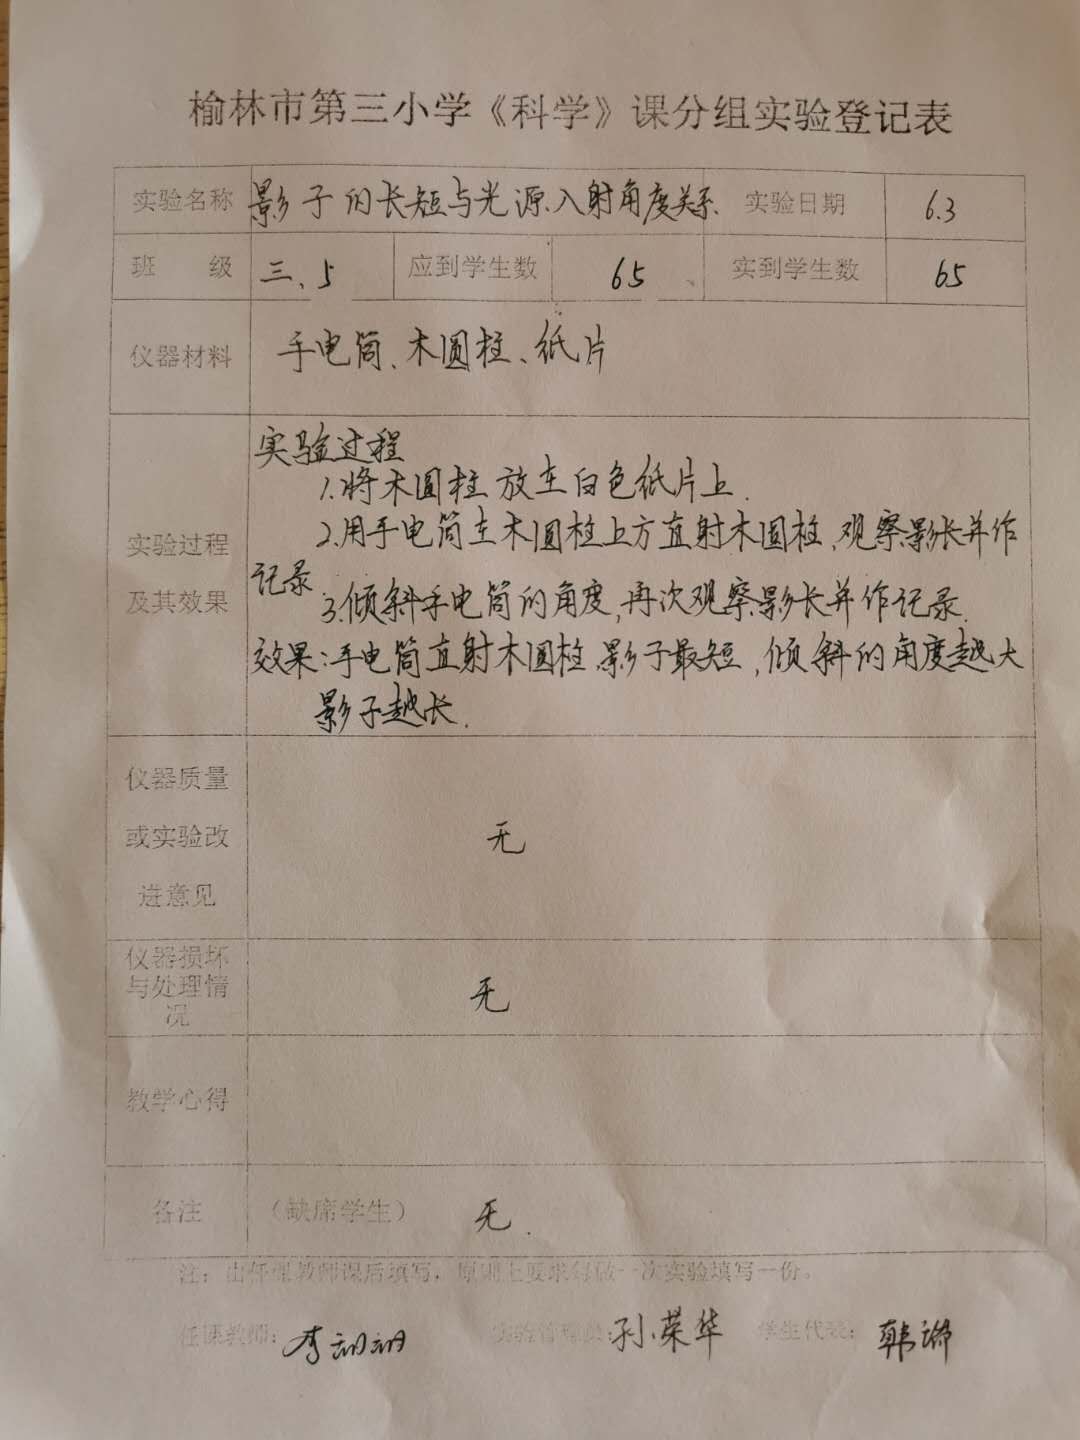 榆林市第三小学《科学》课分组实验登记表
实验名称 影子的长短与光源入射角度关系 实验日期 6.3
班 级 三、5 应到学生数 65 实到学生数 65
仪器材料 手电筒、木圆柱、纸片
实验过程
1.将木圆柱放在白色纸片上.
2.用手电筒在木圆柱上方直射木圆柱,观察影长并作
实验过程
及其效果
记录.
3.倾斜手电筒的角度,再次观察影长并作记录.
效果:手电筒直射木圆柱,影子最短,倾斜的角度越大
影子越长.
仪器质量
或实验改
进意见
无
仪器损坏
与处理情
况
无
教学心得
备注 （缺席学生） 无.
注：由任课教师课后填写，原则上要求每做一次实验填写一份。
任课教师: 李 实验管理员: 孙荣华 学生代表: 韩